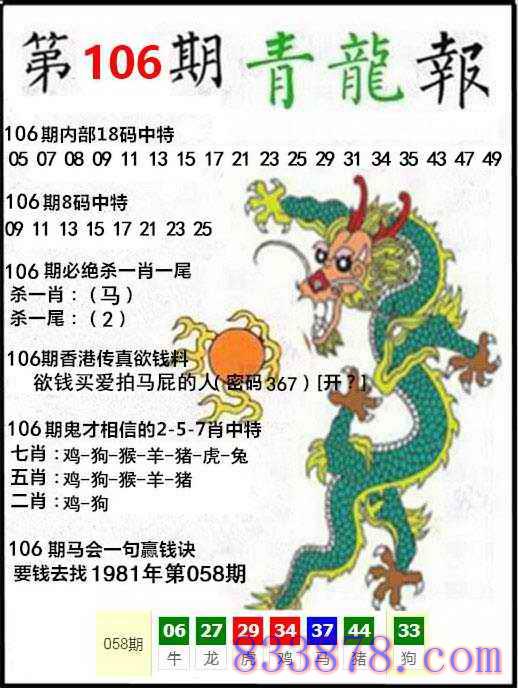 第106期 青龍報
106期内部18码中特
05 07 08 09 11 13 15 17 21 23 25 29 31 34 35 43 47 49
106期8码中特
09 11 13 15 17 21 23 25
106期必绝杀一肖一尾
杀一肖:(马)
杀一尾:(2)
106期香港传真欲钱料
欲钱买爱拍马屁的人(密码367)[开?]
106期鬼才相信的2-5-7肖中特
七肖:鸡-狗-猴-羊-猪-虎-兔
五肖:鸡-狗-猴-羊-猪
二肖:鸡-狗
106期马会一句赢钱诀
要钱去找1981年第058期
058期 06 27 29 34 37 44 33
牛 龙 虎 鸡 马 猪 狗
833878.com